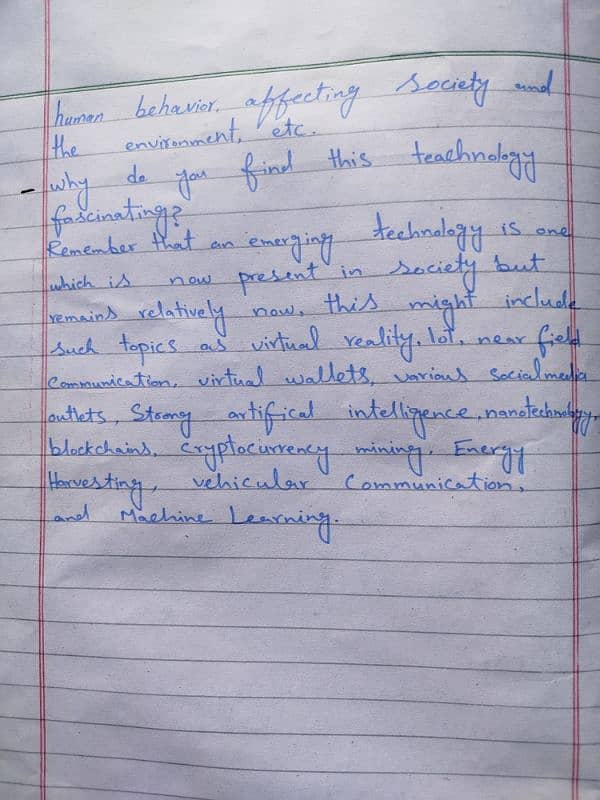 human behavior. affecting society and
the environment, etc.
- why do you find this teachnology
fascinating?
Remember that an emerging technology is one
which is now present in society but
remains relatively now, this might include
such topics as virtual reality, lot, near field
communication, virtual wallets, various socialmedia
outlets, Strong artifical intelligence, nanotechnology,
blockchains, cryptocurrency mining, Energy
Harvesting, vehicular Communication,
and Machine Learning.